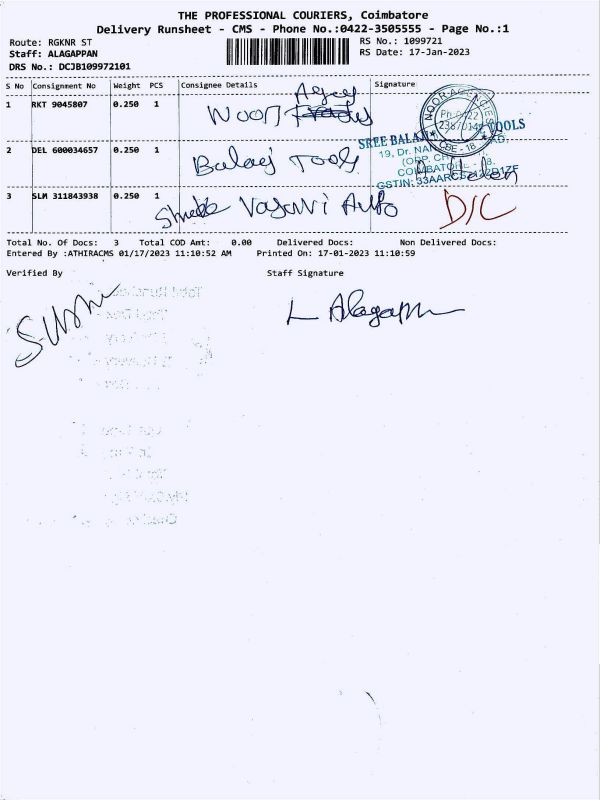 THE PROFESSIONAL COURIERS, Coimbatore
Delivery Runsheet - CMS - Phone No.:0422-3505555 - Page No.:1
Route: RGKNR ST
Staff: ALAGAPPAN
DRS No.: DCJB109972101
RS No.: 1099721
RS Date: 17-Jan-2023
S No Consignment No Weight PCS Consignee Details Signature
1 RKT 9045807 0.250 1 Noor Agcy
NOOR AGENCIES
Ph:0422
CBE - 18
2 DEL 600034657 0.250 1 Balaj Tools
SREE BALAJI TOOLS
19, Dr. NAN
(OPP.
COIMBATORE - 18.
GSTIN: 33AARCS
3 SLM 311843938 0.250 1 Shree Vasavi Auto D/C
Total No. Of Docs: 3 Total COD Amt: 0.00 Delivered Docs: Non Delivered Docs:
Entered By :ATHIRACMS 01/17/2023 11:10:52 AM Printed On: 17-01-2023 11:10:59
Verified By Staff Signature
L Alagappan